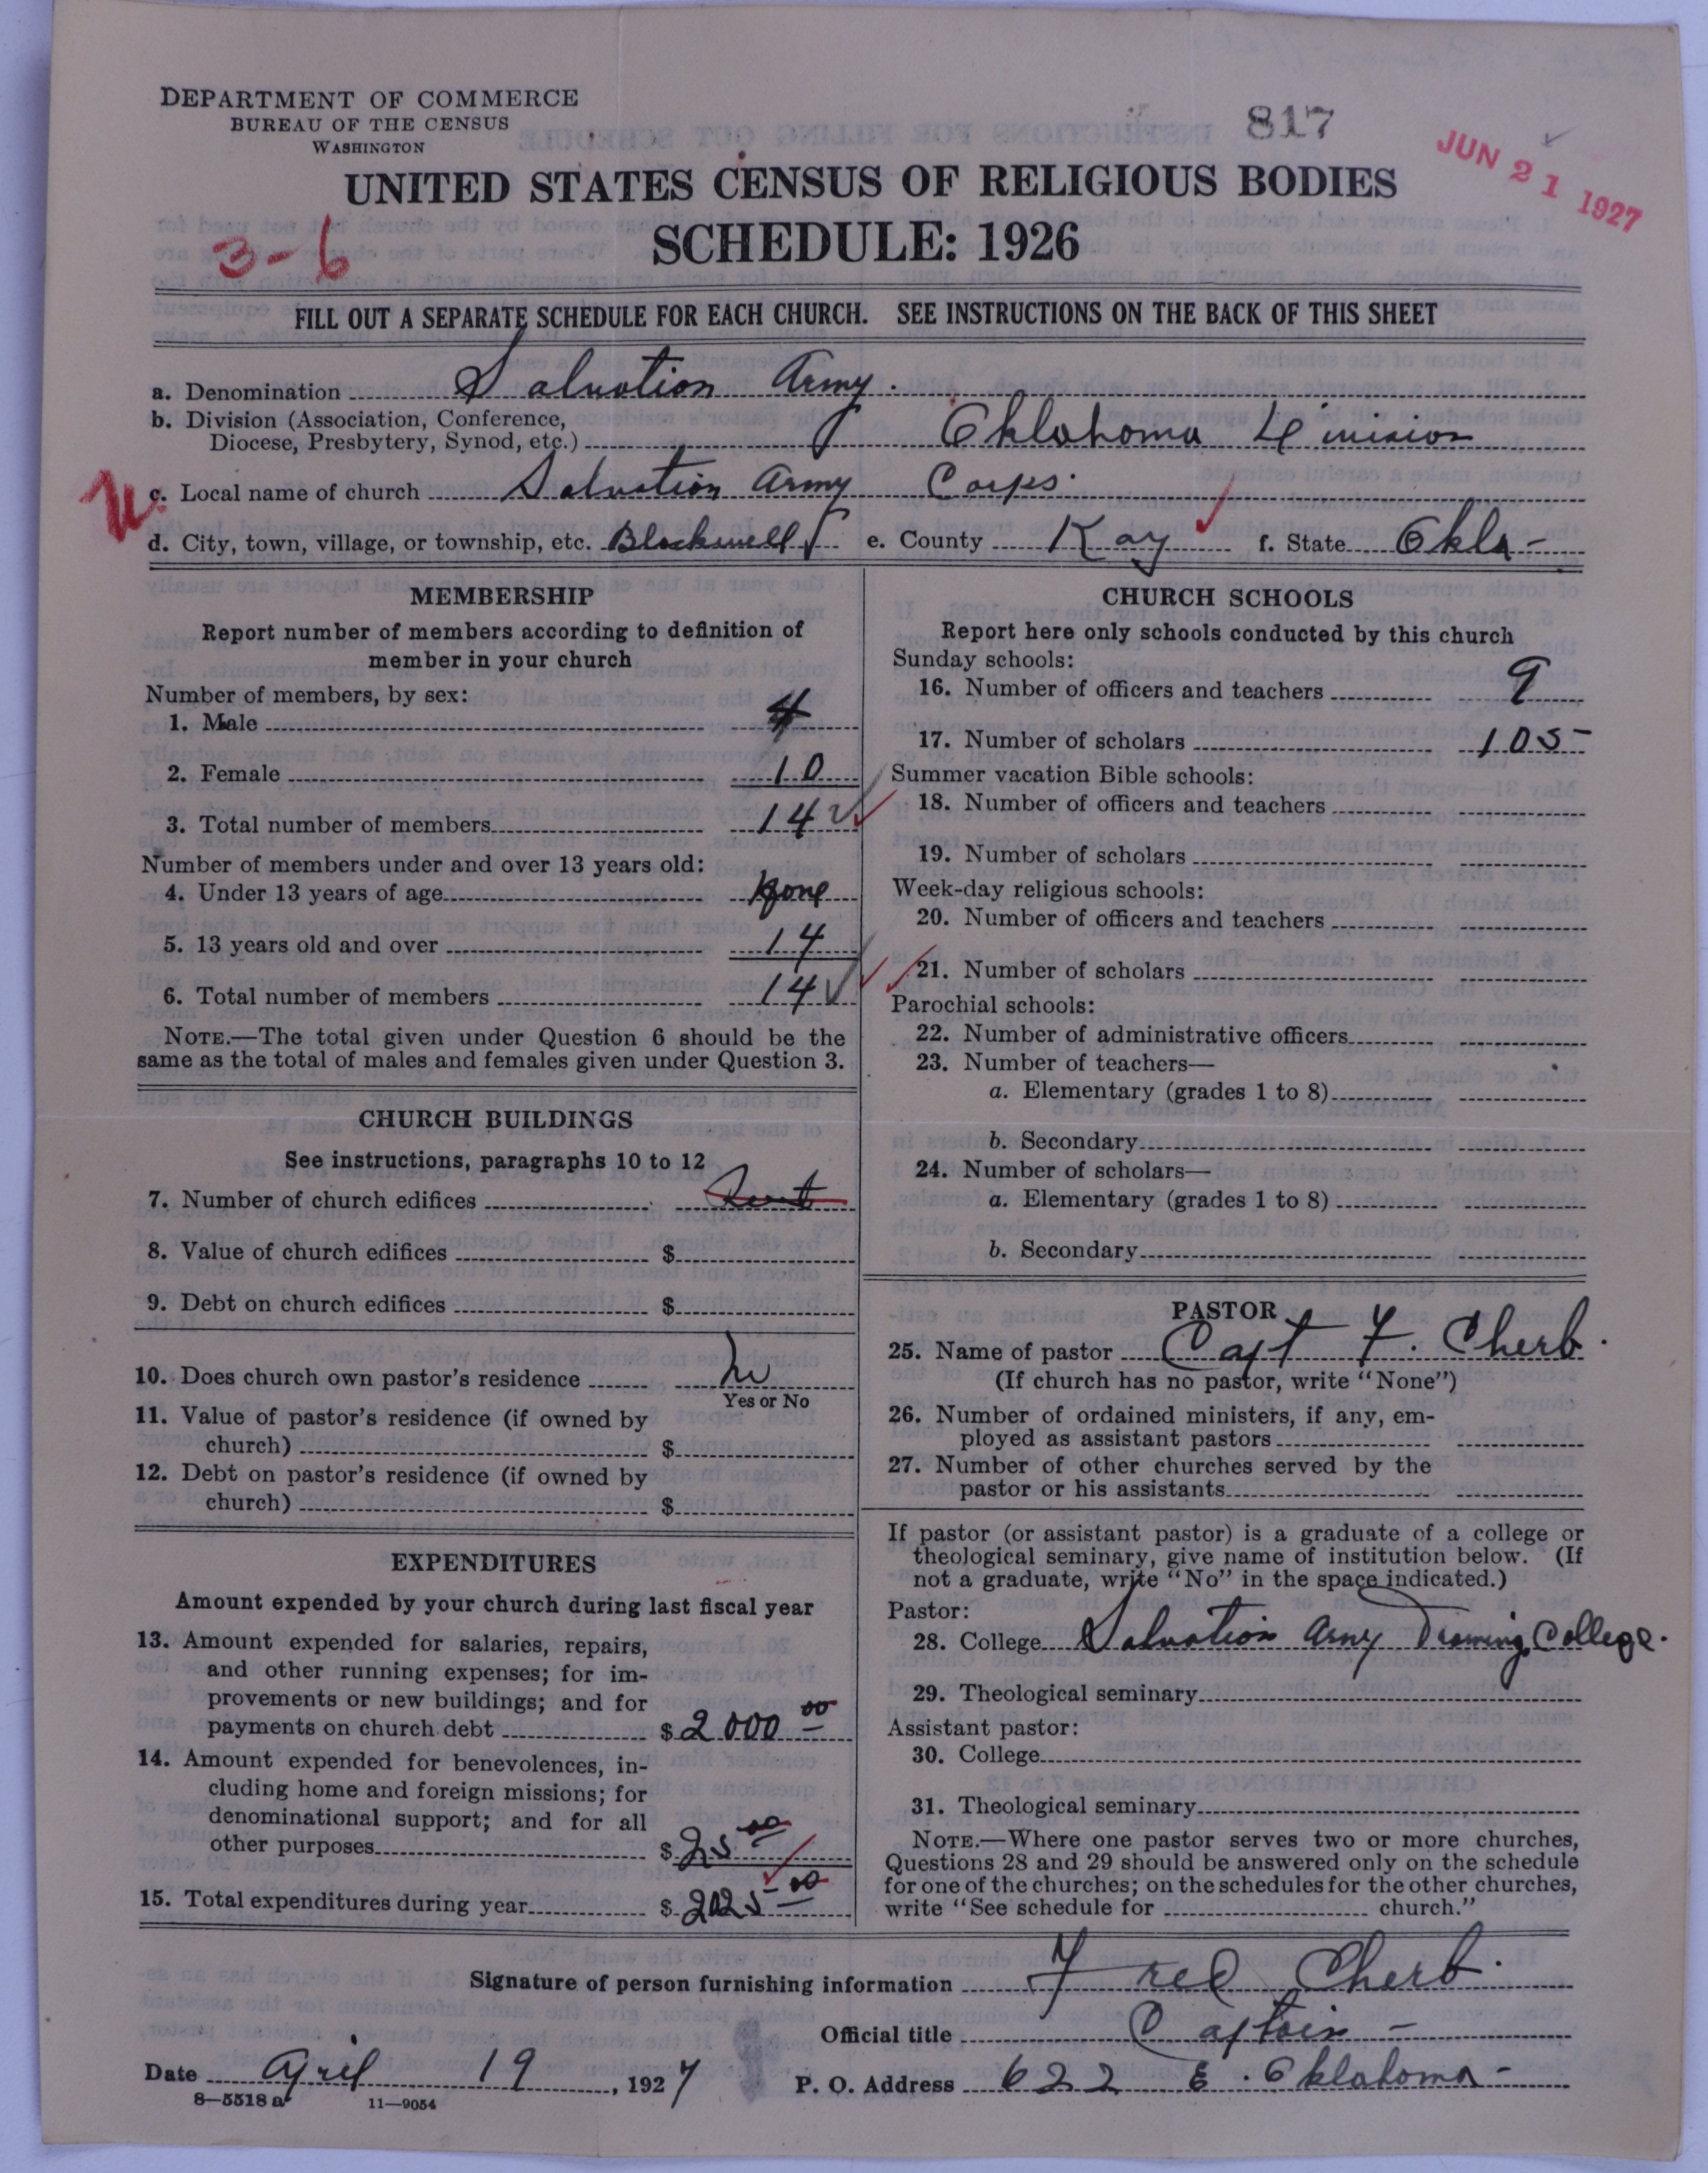 DEPARTMENT OF COMMERCE
BUREAU OF THE CENSUS
WASHINGTON
817
JUN 21 1927
UNITED STATES CENSUS OF RELIGIOUS BODIES
SCHEDULE: 1926
3-6
FILL OUT A SEPARATE SCHEDULE FOR EACH CHURCH. SEE INSTRUCTIONS ON THE BACK OF THIS SHEET
a. Denomination Salvation Army.
b. Division (Association, Conference,
Diocese, Presbytery, Synod, etc.) Oklahoma Division
c. Local name of church Salvation Army Corps.
d. City, town, village, or township, etc. Blackwell e. County Kay f. State Okla-
MEMBERSHIP
Report number of members according to definition of
member in your church
Number of members, by sex:
1. Male 4
2. Female 10
3. Total number of members 14
Number of members under and over 13 years old:
4. Under 13 years of age None
5. 13 years old and over 14
6. Total number of members 14
NOTE.—The total given under Question 6 should be the
same as the total of males and females given under Question 3.
CHURCH BUILDINGS
See instructions, paragraphs 10 to 12
7. Number of church edifices Rent
8. Value of church edifices $
9. Debt on church edifices $
10. Does church own pastor's residence No
Yes or No
11. Value of pastor's residence (if owned by
church) $
12. Debt on pastor's residence (if owned by
church) $
EXPENDITURES
Amount expended by your church during last fiscal year
13. Amount expended for salaries, repairs,
and other running expenses; for im-
provements or new buildings; and for
payments on church debt $ 2000 00
14. Amount expended for benevolences, in-
cluding home and foreign missions; for
denominational support; and for all
other purposes $ 25 00
15. Total expenditures during year $ 2025 00
CHURCH SCHOOLS
Report here only schools conducted by this church
Sunday schools:
16. Number of officers and teachers 9
17. Number of scholars 105
Summer vacation Bible schools:
18. Number of officers and teachers
19. Number of scholars
Week-day religious schools:
20. Number of officers and teachers
21. Number of scholars
Parochial schools:
22. Number of administrative officers
23. Number of teachers—
a. Elementary (grades 1 to 8)
b. Secondary
24. Number of scholars—
a. Elementary (grades 1 to 8)
b. Secondary
PASTOR
25. Name of pastor Capt F. Cherb.
(If church has no pastor, write "None")
26. Number of ordained ministers, if any, em-
ployed as assistant pastors
27. Number of other churches served by the
pastor or his assistants
If pastor (or assistant pastor) is a graduate of a college or
theological seminary, give name of institution below. (If
not a graduate, write "No" in the space indicated.)
Pastor:
28. College Salvation Army Training College.
29. Theological seminary
Assistant pastor:
30. College
31. Theological seminary
NOTE.—Where one pastor serves two or more churches,
Questions 28 and 29 should be answered only on the schedule
for one of the churches; on the schedules for the other churches,
write "See schedule for church."
Signature of person furnishing information Fred Cherb.
Official title Captain -
Date April 19, 1927 P. O. Address 622 E. Oklahoma -
8—5518 a 11—9054